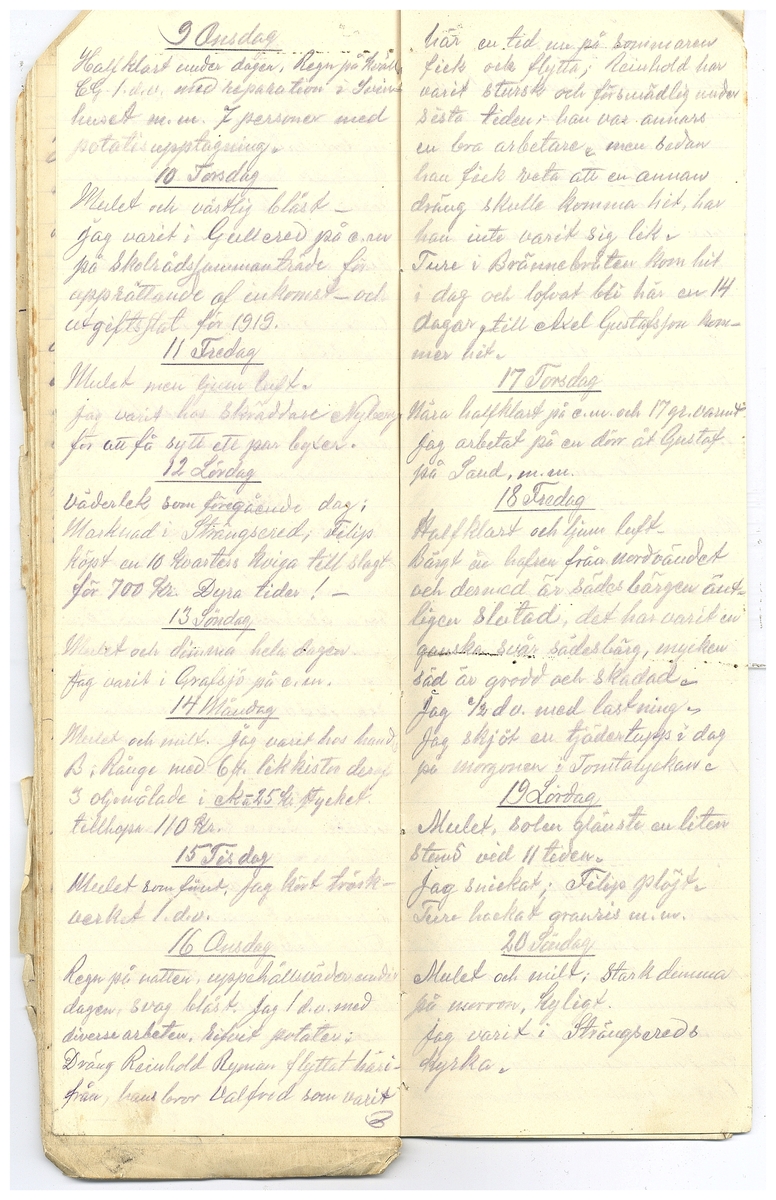 9 Onsdag
Halfklart under dagen, Regn på kväll
CG. 1. d.v. med reparation i Svin-
huset m.m. 7 personer med
potatisupptagning.
10 Torsdag
Mulet och västlig blåst –
jag varit i Gullered på e.m
på skolrådssammanträde för
upprättande af inkomst- och
utgiftsstat för 1919.
11 Fredag
Mulet men ljum luft.
jag varit hos skräddare Nyberg
för att få sytt ett par byxor.
12 Lördag
väderlek som föregående dag;
Marknad i Strängsered; Filip
köpt en 10 kvarters kviga till slagt
för 700 Kr. Dyra tider! –
13 Söndag
Mulet och dimma hela dagen.
Jag varit i Grafsjö på e.m.
14 Måndag
Mulet och milt. Jag varit hos hand.
B. i Rånge med 6 st. likkistor deraf
3 oljmålade i 25 kr stycket.
tillhopa 110 Kr.
15 Tisdag
Mulet som förut. Jag kört trösk-
verket 1. d.v.
16 Onsdag
Regn på natten, uppehållsväder under
dagen, svag blåst. Jag 1 d.v. med
diverse arbeten, potater;
Dräng Reinhold Ryman flyttat häri-
från, hans bror Valfrid som varit
här en tid nu på sommaren
fick ock flytta; Reinhold har
varit stursk och försmädlig under
sista tiden; han var annars
en bra arbetare, men sedan
han fick veta att en annan
dräng skulle komma hit, har
han inte varit sig lik.
Ture i Brännebråten kom hit
i dag och lofvat bli här en 14
dagar, till Axel Gustafsson kom-
mer hit.
17 Torsdag
Nära halfklart på e.m. och 17 gr. varmt
Jag arbetat på en dörr åt Gustaf
på Sand, m.m.
18 Fredag
Halfklart och ljum luft –
Bärgt in hafren från nordvändet
och dermed är sädesbärgen änt-
ligen slutad, det har varit en
ganska svår sädesbärg, mycken
säd är grodd och skadad.
Jag 1/2 d.v. med lastning.
Jag skjöt en tjädertupp i dag
på morgonen i Tomtalyckan.
19 Lördag
Mulet, solen glänste en liten
stund vid 11 tiden.
Jag snickat; Filip plöjt.
Ture hackat granris m.m.
20 Söndag
Mulet och milt; stark dimma
på morron, kyligt.
Jag varit i Strängsereds
kyrka.